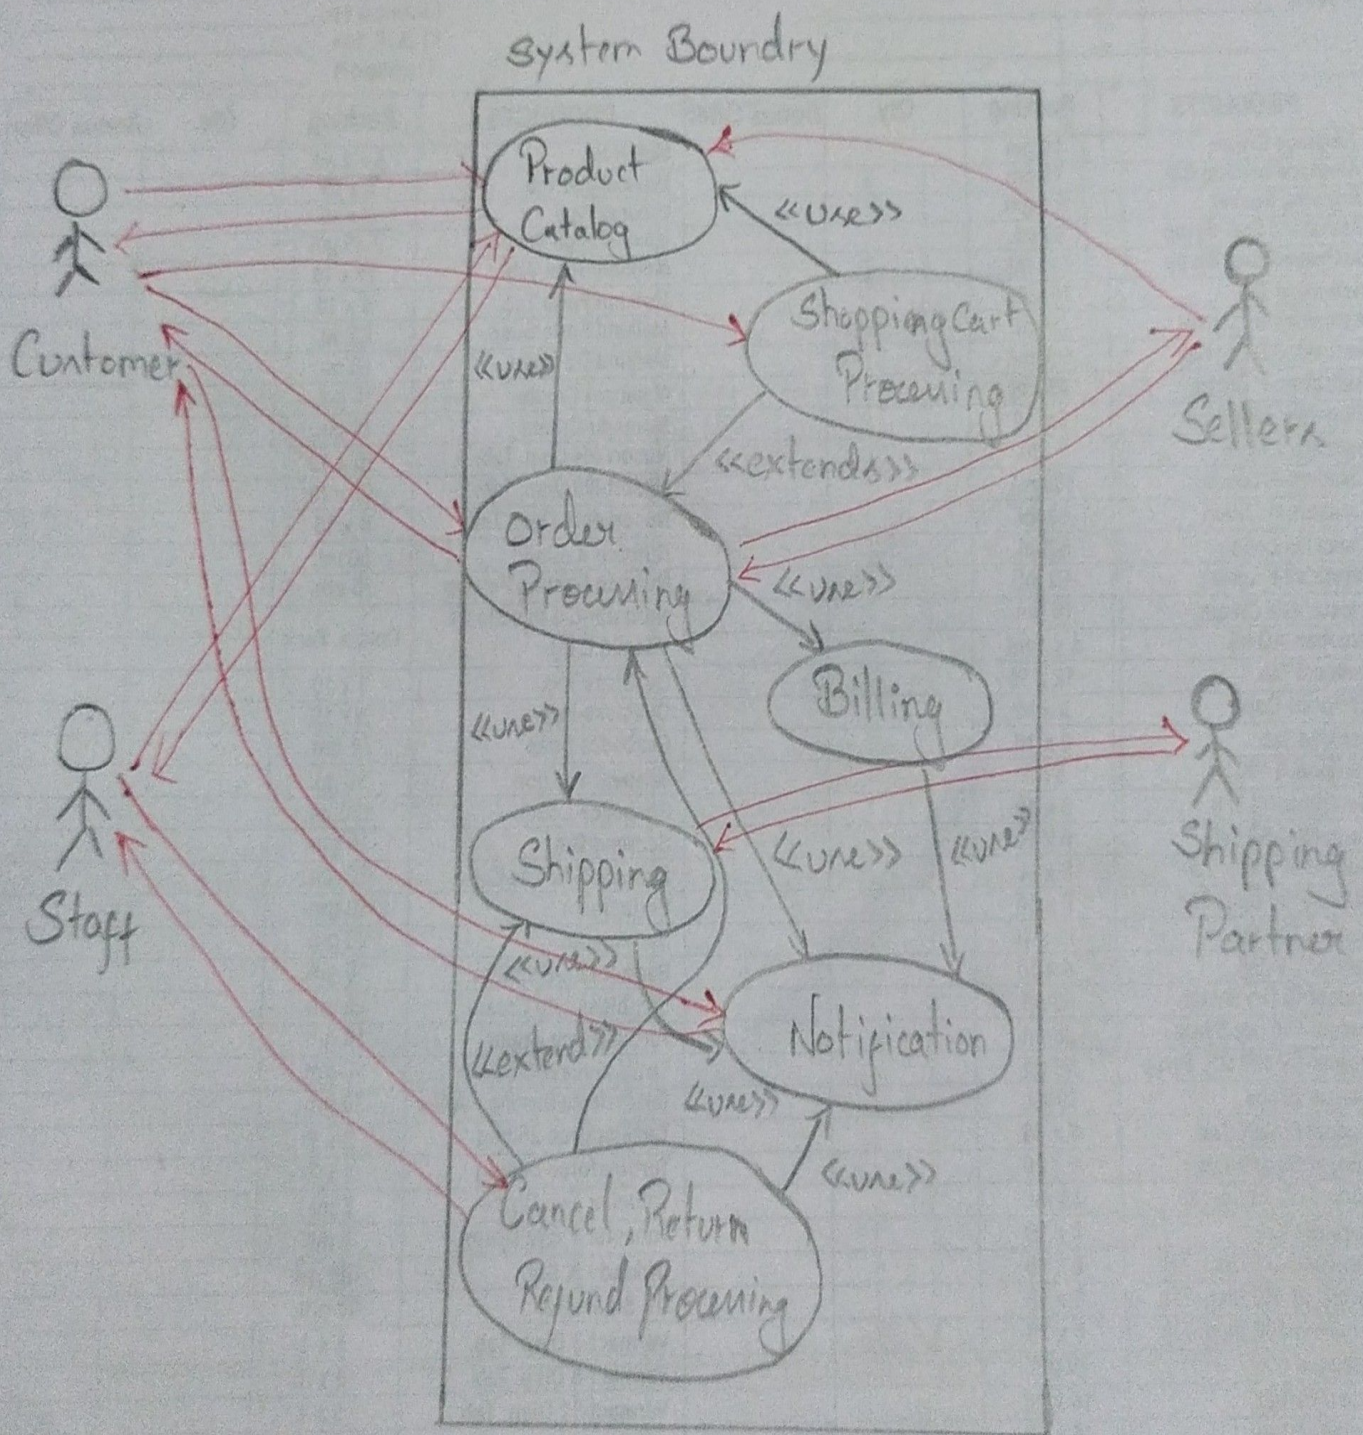 System Boundry
Product
Catalog
<<use>>
Shopping Cart
Processing
Customer
<<use>>
Sellers
<<extends>>
Order
Processing
<<use>>
Billing
<<use>>
Shipping
<<use>>
<<use>>
Shipping
Partner
Staff
<<use>>
<<extend>>
Notification
<<use>>
<<use>>
Cancel, Return
Refund Processing